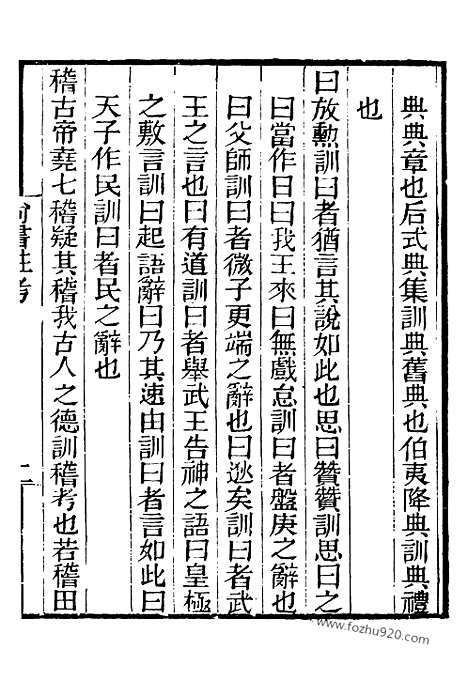 典典章也后式典集訓典舊典也伯夷降典訓典禮
也
曰放勲訓曰者猶言其說如此也思曰贊贊訓思曰之
曰當作日曰我王來曰無戲怠訓曰者盤庚之辭也
曰父師訓曰者微子更端之辭也曰逖矣訓曰者武
王之言也曰有道訓曰者舉武王告神之語曰皇極
之敷言訓曰起語辭曰乃其速由訓曰者言如此曰
天子作民訓曰者民之辭也
稽古帝堯七稽疑其稽我古人之德訓稽考也若稽田
尚書注考
二
www.fozhu920.com